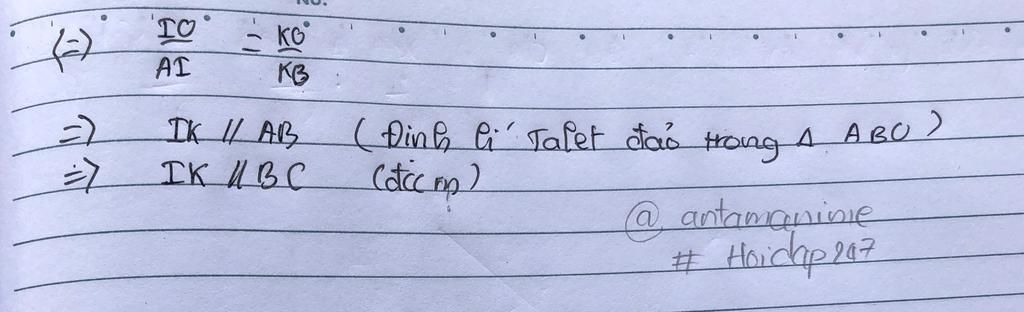 No.
(=) IO/AI = KO/KB
=) IK // AB (Định lí Talet đảo trong Δ ABO)
=) IK // BC (đccm)
@ antamanime
# Hoidap247